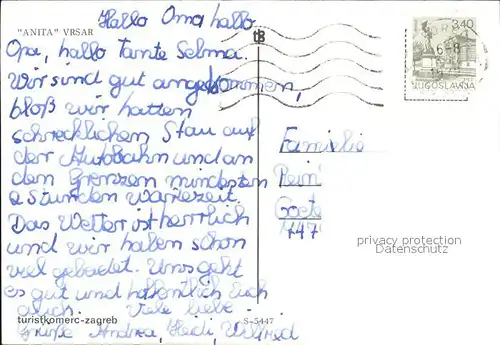 "ANITA" VRSAR
Hallo Oma hallo
Opa, hallo Tante Selma.
Wir sind gut angekommen,
bloß wir hatten
schrecklichen Stau auf
der Autobahn und an
den Grenzen mindesten
2 Stunden Wartezeit.
Das Wetter ist herrlich
und wir haben schon
viel gebadet. Uns geht
es gut und hoffentlich Euch
auch. Viele liebe
Grüße Andrea, Hedi, Wilfried
turistkomerc-zagreb
S-5447
tB
3.40
6-8
JUGOSLAVIJA
Familie
Goete
privacy protection
Datenschutz